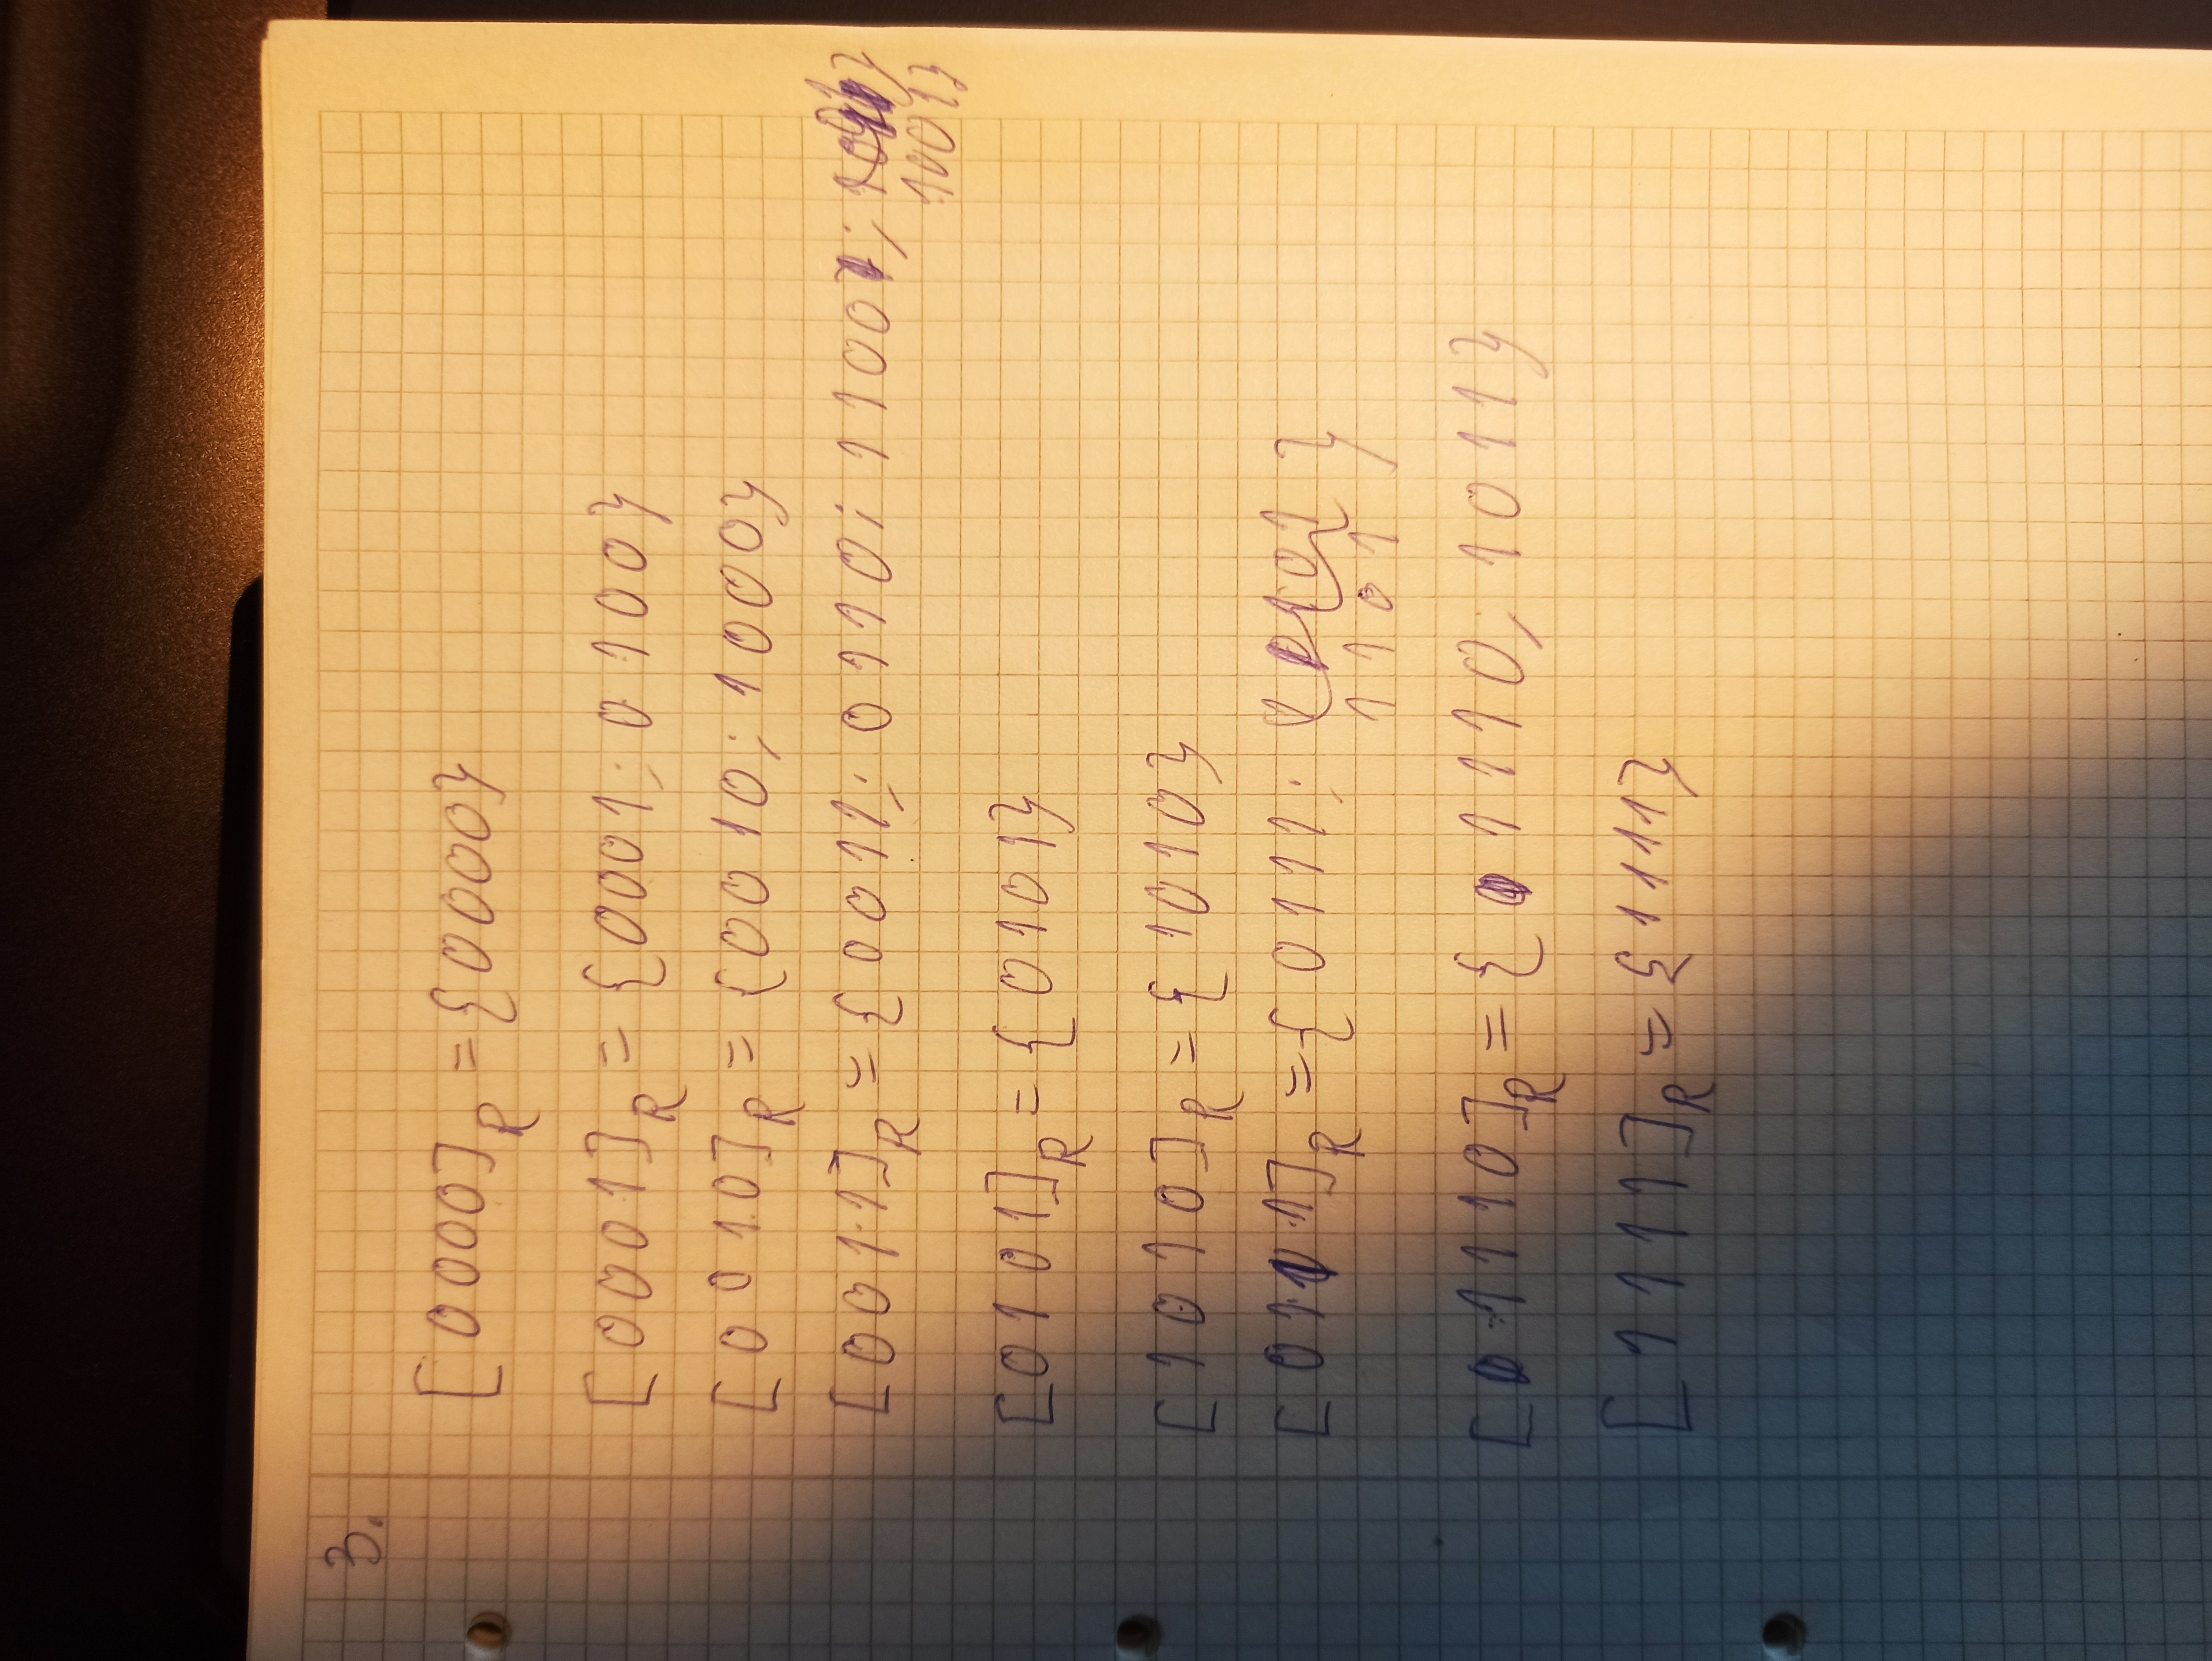 3.
[0000]R = {0000}
[0001]R = {0001; 0100}
[0010]R = {0010; 1000}
[0011]R = {0011; 0110; 1100;
1001}
[0101]R = {0101}
[1010]R = {1010}
[0111]R = {0111; }
1101 }
[1110]R = {1110; 1011}
[1111]R = {1111}